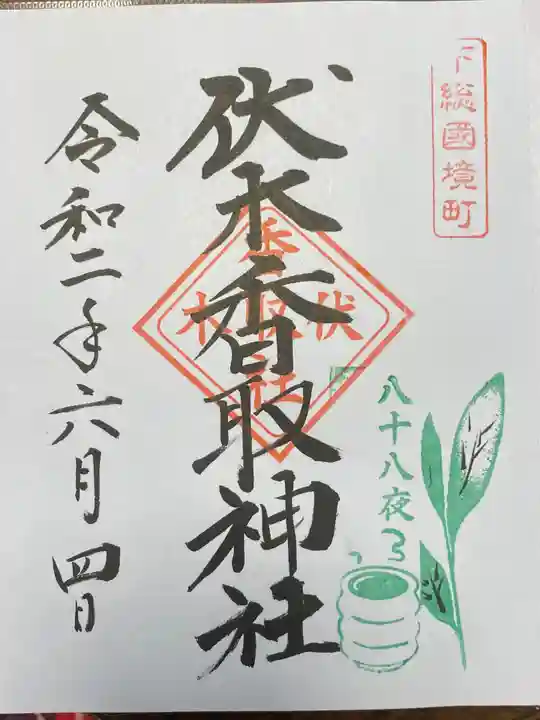 下総國境町
八十八夜
伏木香取神社
伏木
令和二年六月四日